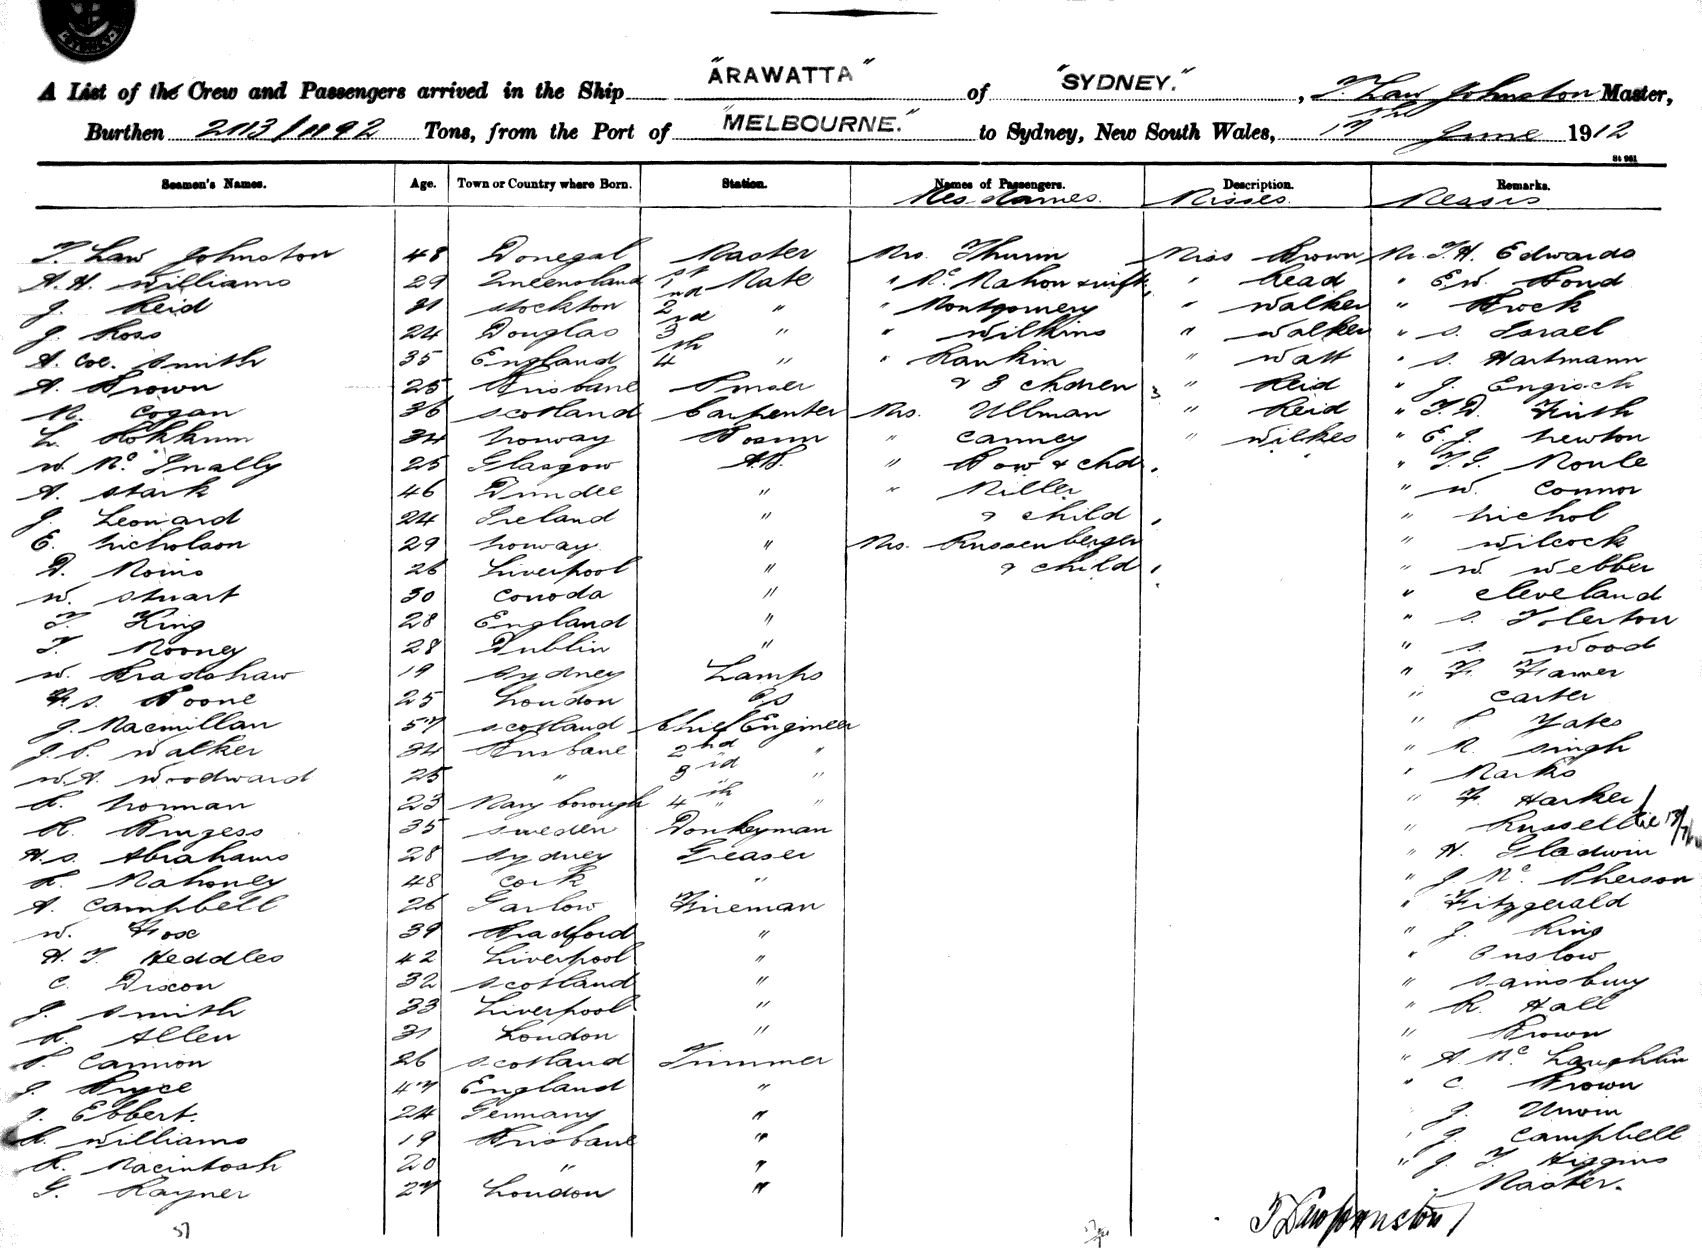 A List of the Crew and Passengers arrived in the Ship "ARAWATTA" of "SYDNEY.", T. Law Johnston Master,
Burthen 2113/1192 Tons, from the Port of "MELBOURNE." to Sydney, New South Wales, 17th June 1912
St 961
Seamen's Names. Age. Town or Country where Born. Station. Names of Passengers. Description. Remarks.
Mesdames. Misses. Messrs
T. Law Johnston 48 Donegal Master Mrs. Thurm Miss Brown Mr. T.H. Edwards
A.H. Williams 29 Queensland 1st Mate " McMahon & inft " Read " E.W. Bond
J. Reid 31 Stockton 2nd " " Montgomery " Walker " Brock
J. Ross 24 Douglas 3rd " " Wilkins " Walker " S. Israel
A. Coe. Smith 35 England 4th " " Rankin " Watt " S. Hartmann
A. Brown 25 Brisbane Purser & 3 chdren 3 " Reid " J. Engisch
R. Cogan 36 Scotland Carpenter Mrs. Ullman " Reid " T.D. Firth
L. Hokkum 34 Norway Bosun " Canney " Wilkes " E.J. Newton
W. McInally 25 Glasgow A.B. " Bow & chd. " T.G. Moule
A. Stark 46 Dundee " " Miller " W. Connor
J. Leonard 24 Ireland " & child " Nichol
E. Nicholson 29 Norway " Mrs. Russenberger " Wilcock
D. Moins 26 Liverpool " & child " W. Webber
W. Stuart 30 Canada " " Cleveland
T. King 28 England " " S. Tolerton
T. Rooney 28 Dublin " " S. Wood
W. Bradshaw 19 Sydney Lamps " F. Framer
F.S. Boone 25 London O/S " Carter
J. Macmillan 57 Scotland Chief Engineer " P. Yates
J.P. Walker 34 Brisbane 2nd " " R. Singh
W.A. Woodward 25 " 3rd " " Marks
R. Norman 23 Maryborough 4th " " F. Harker
R. Burgess 35 Sweden Donkeyman " Russell
H.S. Abrahams 28 Sydney Greaser " H. Gladwin
R. Mahoney 48 Cork " " J. McPherson
A. Campbell 26 Garlow Fireman " Fitzgerald
W. Fox 39 Bradford " " J. King
H.T. Heddles 42 Liverpool " " Onslow
C. Dixon 32 Scotland " " Sainsbury
J. Smith 33 Liverpool " " R. Hall
R. Allen 31 London " " Brown
P. Cannon 26 Scotland Trimmer " A. McLaughlin
J. Bryce 47 England " " C. Brown
J. Ebbert. 24 Germany " " J. Unwin
R. Williams 19 Brisbane " " J. Campbell
R. Macintosh 20 " " " J.T. Higgins
G. Rayner 27 London " Master.
37 T Law Johnston